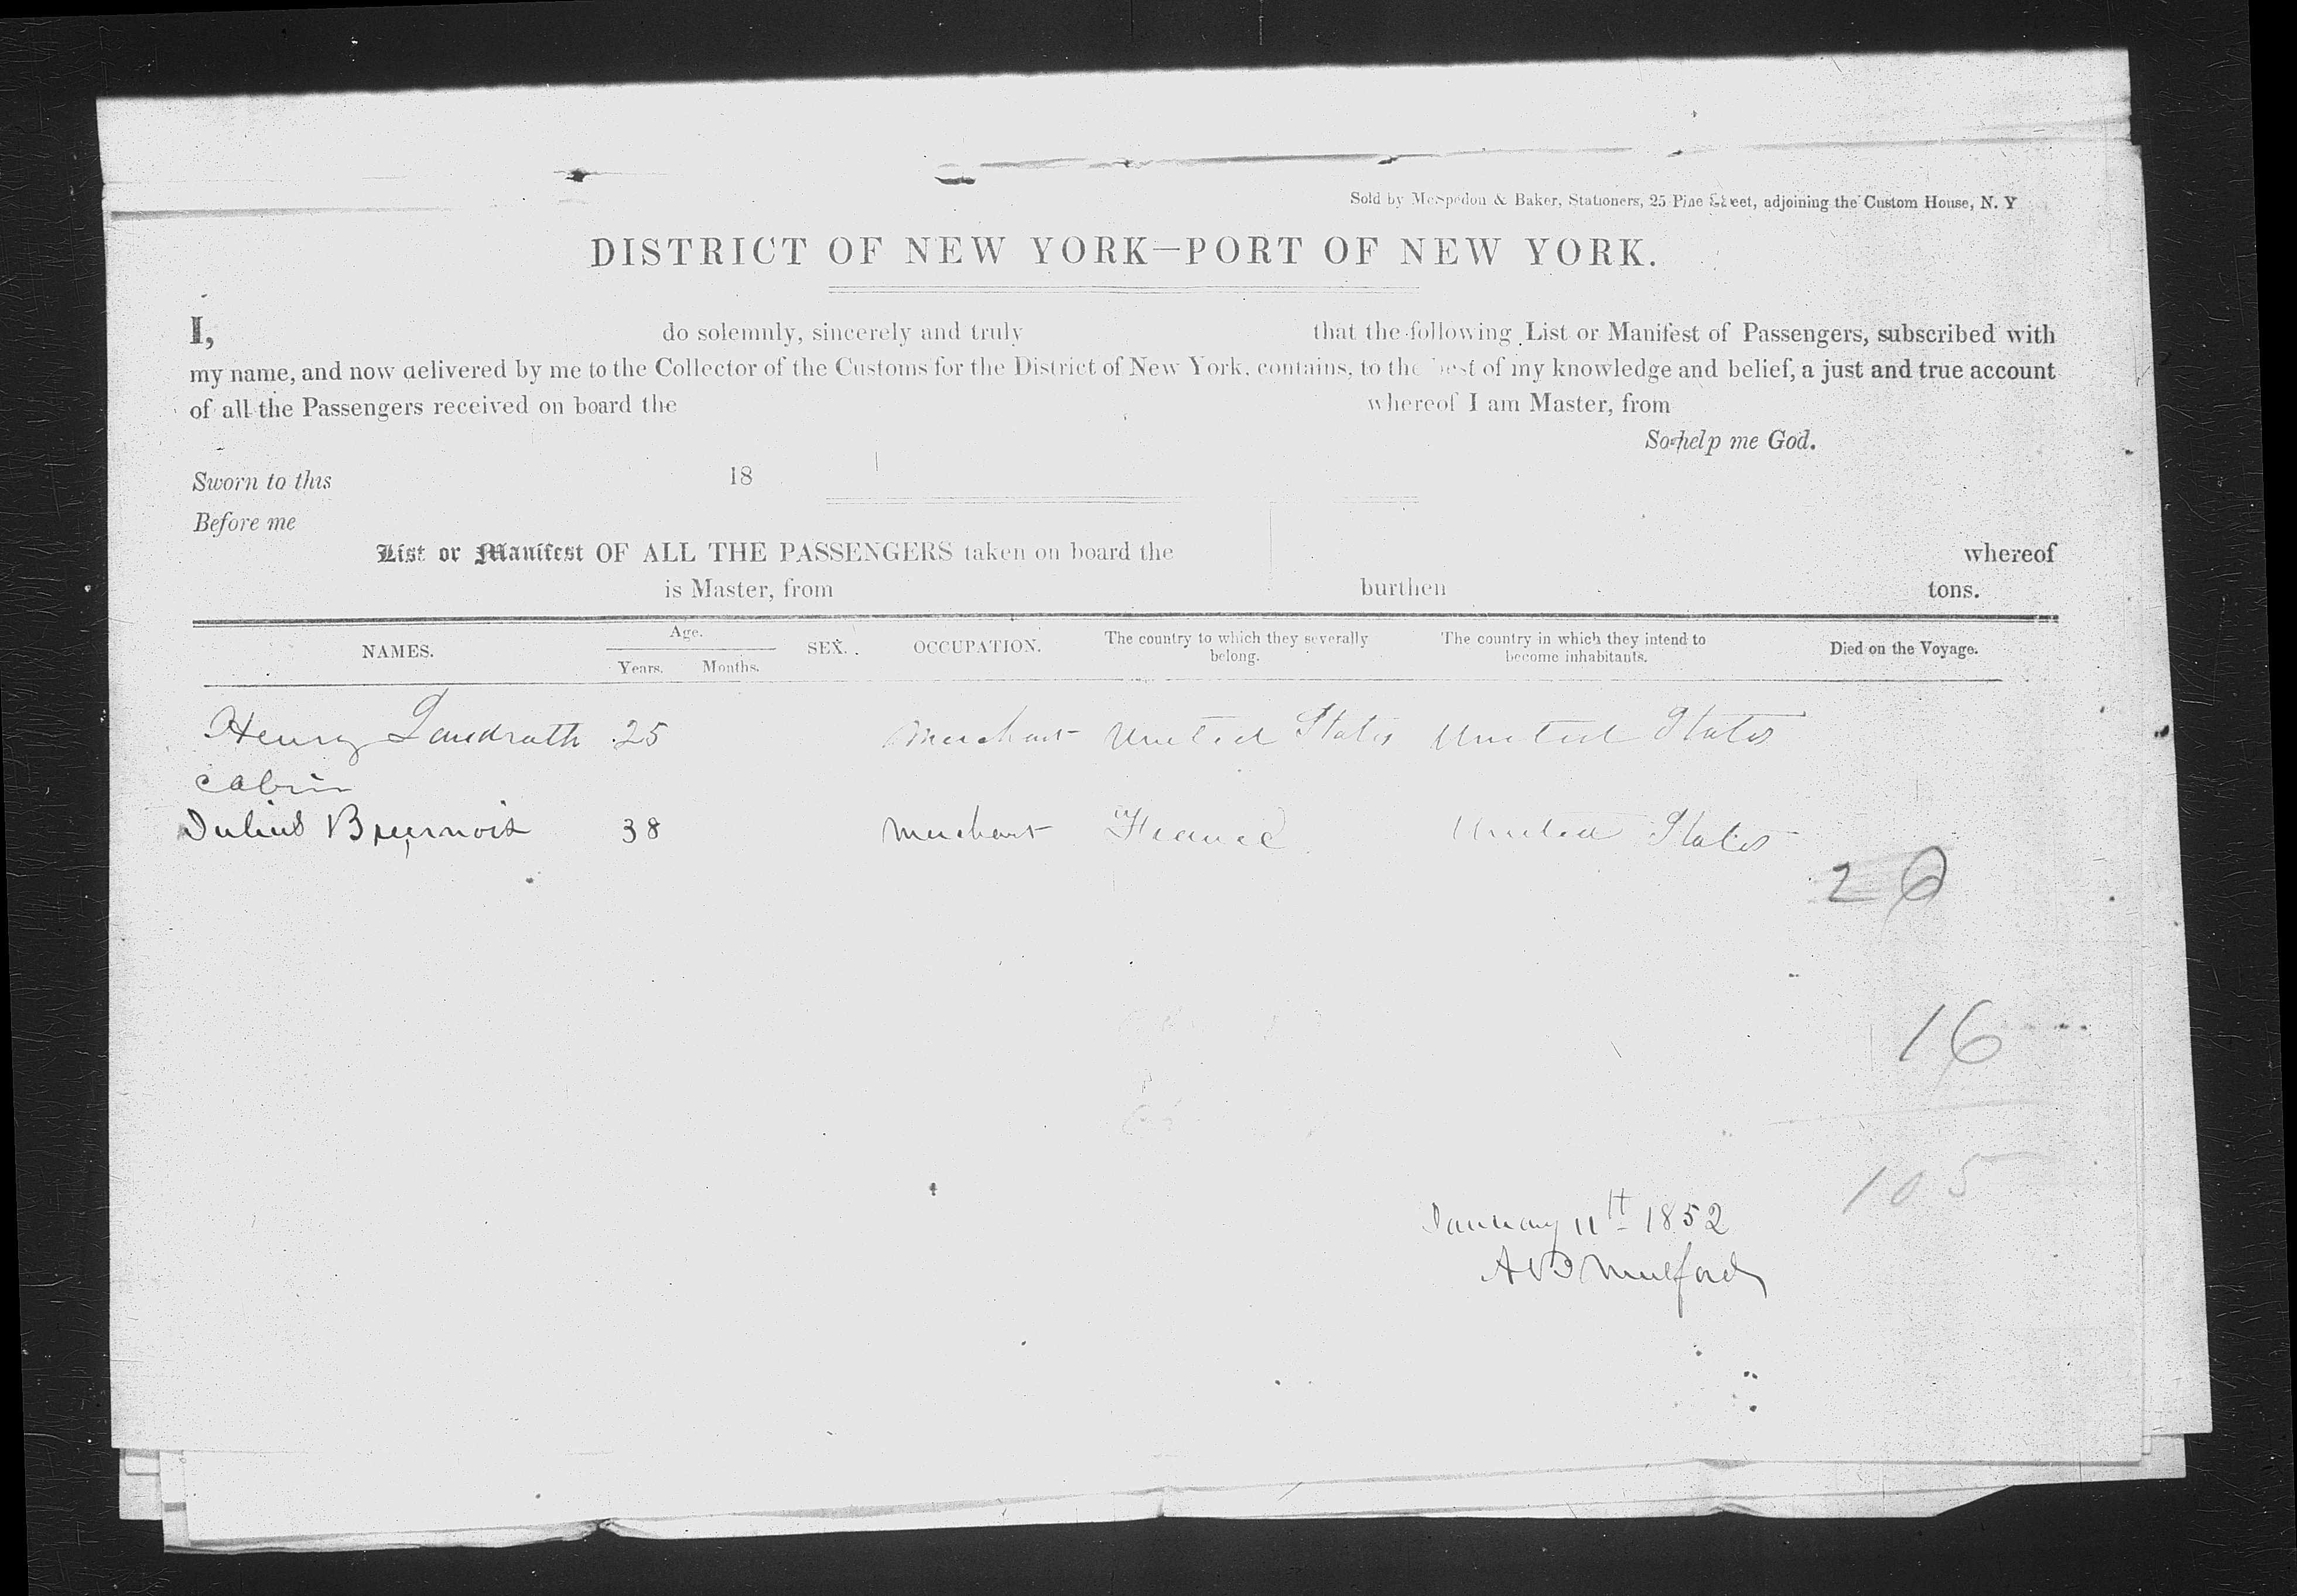 Sold by McSpedon & Baker, Stationers, 25 Pine Street, adjoining the Custom House, N. Y
DISTRICT OF NEW YORK—PORT OF NEW YORK.
I, do solemnly, sincerely and truly that the following List or Manifest of Passengers, subscribed with
my name, and now delivered by me to the Collector of the Customs for the District of New York, contains, to the best of my knowledge and belief, a just and true account
of all the Passengers received on board the whereof I am Master, from
So help me God.
Sworn to this 18
Before me
List or Manifest OF ALL THE PASSENGERS taken on board the whereof
is Master, from burthen tons.
NAMES. Age. Years. Months. SEX. OCCUPATION. The country to which they severally belong. The country in which they intend to become inhabitants. Died on the Voyage.
Henry Landrath 25 Merchant United States United States
Cabin
Julius 38 Merchant France United States
2
16
105
January 11th 1852
A B Mulford